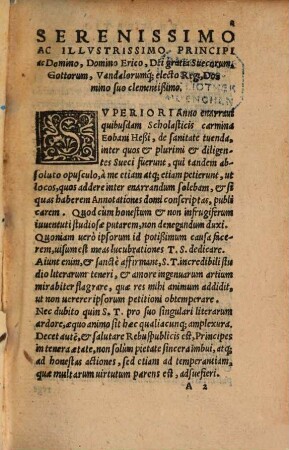 SERENISSIMO
AC ILLVSTRISSIMO PRINCIPI
ac Domino, Domino Erico, Dei gratia Suecorum,
Gottorum, Vandalorumq; electo Regi, Do=
mino suo clementißimo.
SVPERIORI Anno enarraui
quibusdam Scholasticis carmina
Eobani Heßi, de sanitate tuenda,
inter quos & plurimi & diligen=
tes Sueci fuerunt, qui tandem ab=
soluto opusculo, à me etiam atq; etiam petierunt, ut
locos, quos addere inter enarrandum solebam, & si
quas haberem Annotationes domi conscriptas, publi
carem. Quod cùm honestum & non infrugiferum
iuuentuti studiosæ putarem, non denegandum duxi.
Quoniam uerò ipsorum id potißimum causa face=
rem, uisum est meas lucubrationes T. S. dedicare.
Aiunt enim, & sanctè affirmant, T.S. incredibili stu
dio literarum teneri, & amore ingenuarum artium
mirabiliter flagrare, quæ res mihi animum addidit,
ut non uererer ipsorum petitioni obtemperare.
Nec dubito quin S. T. pro suo singulari literarum
ardore, æquo animo sit hæc qualiacunq; amplexura.
Decet autē, & salutare Rebuspublicis est, Principes
in tenera ætate, non solùm pietate sincera imbui, atq;
ad honestas actiones, sed etiam ad temperantiam,
quæ multarum uirtutum parens est, adsuefieri.
A 2